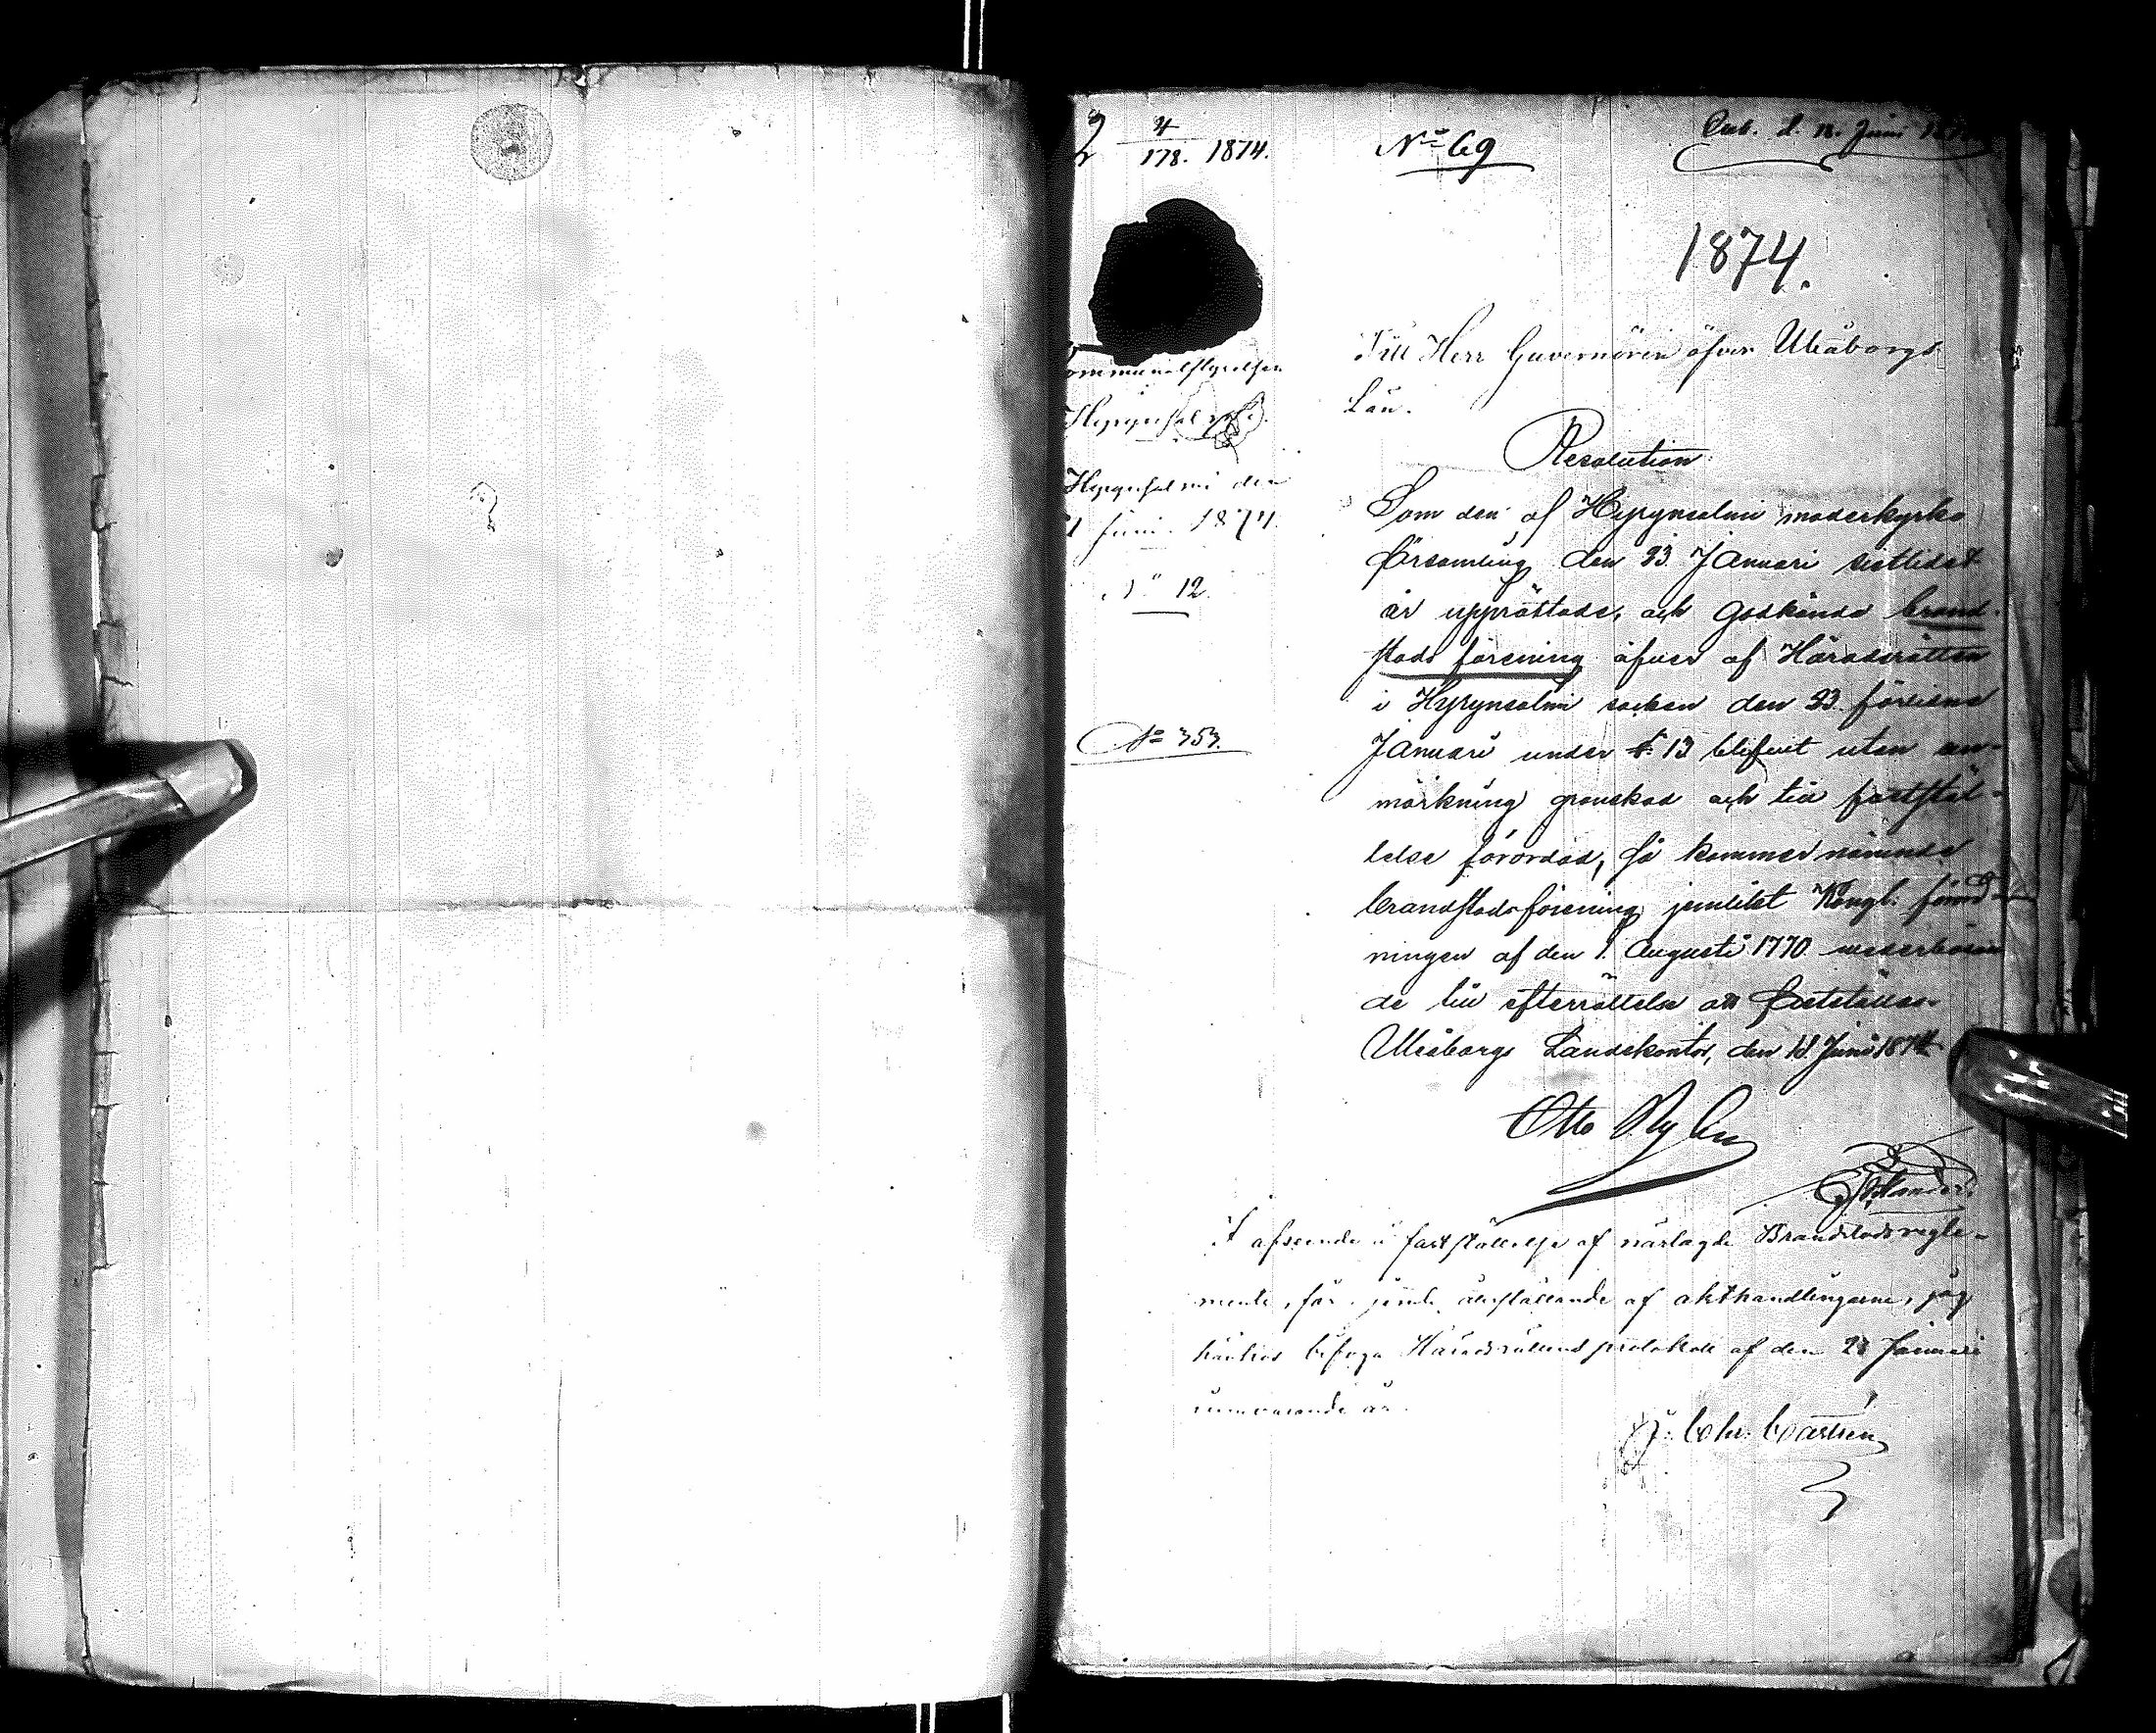 4
178. 1874.
No 69
d. 11. Juni
1874.
Till Herr Guvernören öfver Uleåborgs
Län.
Kommunalstyrelsen
Hyrynsalmi
Hyrynsalmi den
Juni 1874.
No 12.
No 353.
Resolution
Som den af Hyrynsalmi moderkyrko
församling den 23 Januari sistlidet
år upprättade, och godkända brand-
stods förening äfven af Häradsrätten
i Hyrynsalmi socken den 23 förliene
Januari under § 13 blifvit utan an-
märkning granskad och till fastställ-
lelse förordad, så kommer nämnde
brandstodsförening jemlikt Kongl. förord-
ningen af den 1 Augusti 1770 vederböran
de till efterrättelse att fastställas.
Uleåborgs Landskontor, den 11 Juni 1874
Otto Nylén
I afseende å fastställelse af närlagde Brandstodsregle-
mente, får jemte återställande af akthandlingarne, jag
härhos bifoga Häradsrättens protokoll af den 23 Januari
innevarande år.
J. Chr. Castrén